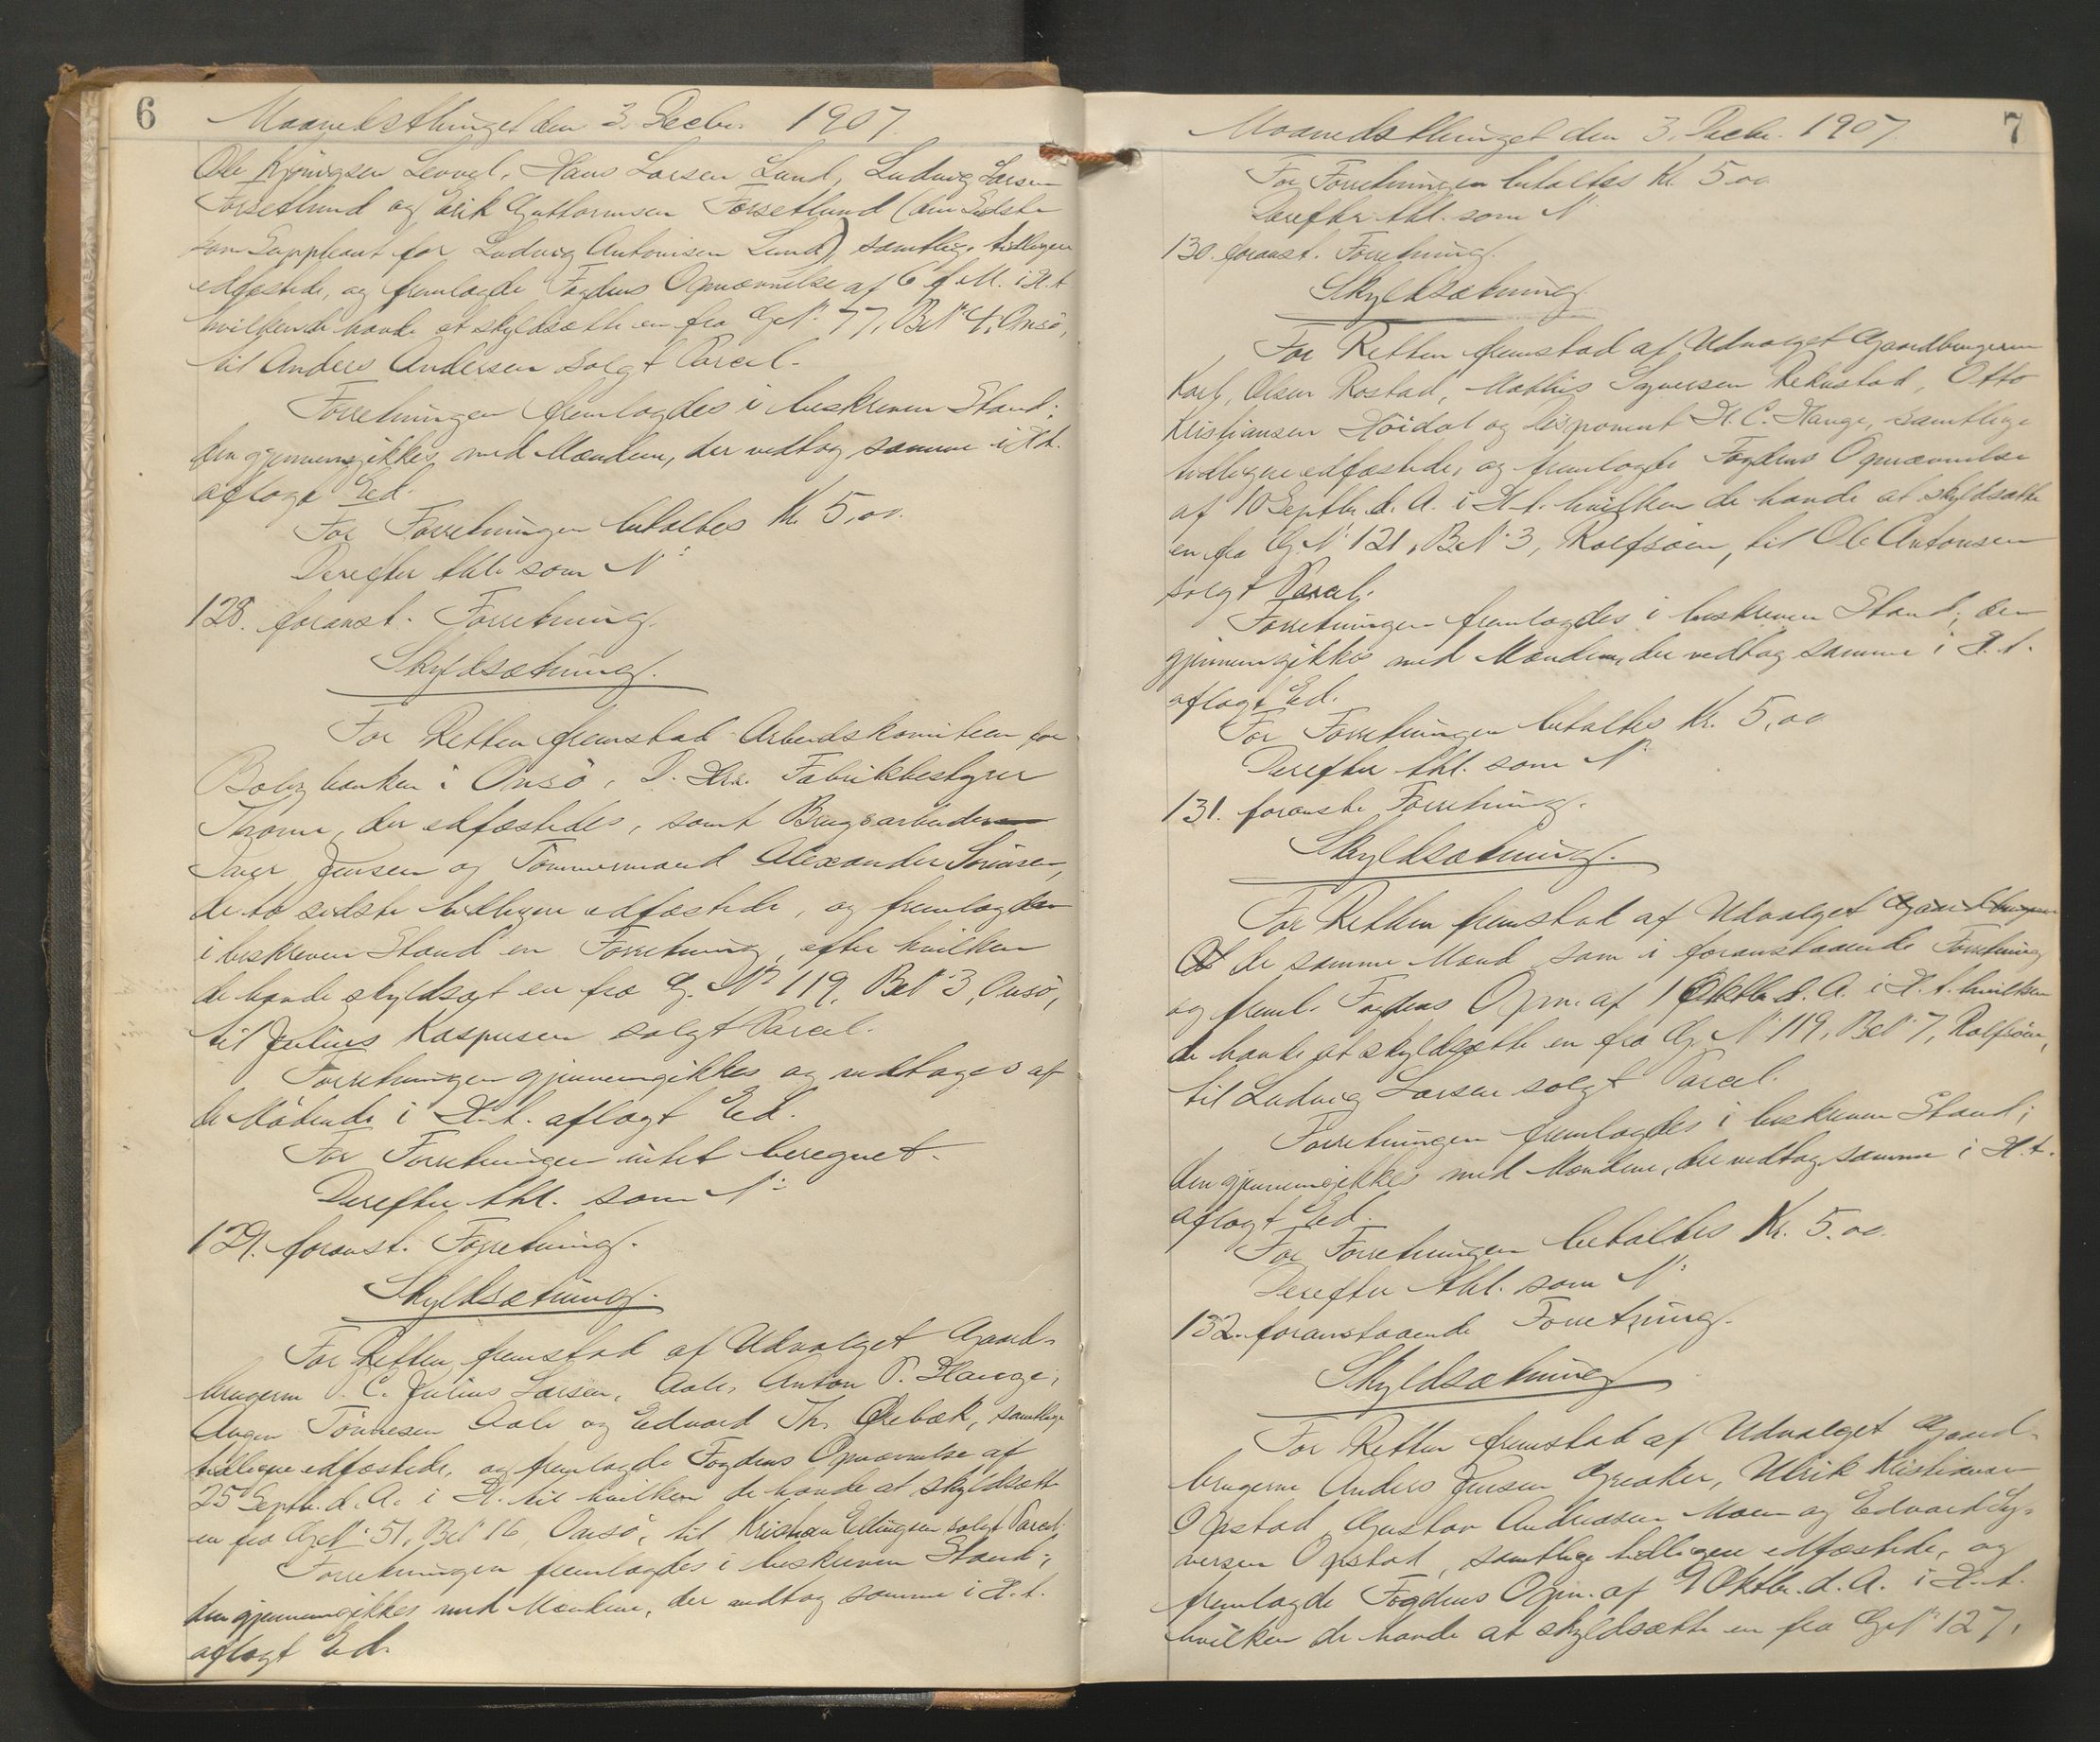 6 Maanedsthinget den 3. Decbr. 1907.
Ole Lervel, Hans Larsen Lund, Ludvig Larsen
Forsetlund og Erik Guttormsen Forsetlund (den Sidste
som Suppleant for Ludvig Antonisen Lund), samtlige tidligere
edfæstede, og fremlagde Fogdens Opnævnelse af 6 f. M. i H. t.
hvilken de havde at skyldsætte en fra G.N.º 77, B.N.º 4, Onsö,
til Anders Andersen solgt Parcel.
Forretningen fremlagdes i beskreven Stand;
den gjennemgikkes med Mændene, der vedtog samme i H. t.
aflagt Ed.
For Forretningen betaltes Kr. 5,00.
Derefter thl. som N.º
128. foranst. Forretning.
Skyldsætning.
For Retten fremstod Arbeidskomiteen for
banken i Onsö, D. Hrr. Fabrikbestyrer
Throne, der edfæstedes, samt Brugsarbeider
Iver Jensen og Tömmermand Alexander Simensen,
de to sidste tidligere edfæstede, og fremlagde
i beskreven Stand en Forretning, efter hvilken
de havde skyldsat en fra G. N.º 119, B.N.º 3, Onsö,
til Julius Kaspersen solgt Parcel.
Forretningen gjennemgikkes og vedtoges af
de Mödende i H. t. aflagt Ed.
For Forretningen intet beregnet.
Derefter thl. som N.º
129. foranst. Forretning.
Skyldsætning.
For Retten fremstod af Udvalget Gaard-
brugerne P. C. Julius Larsen, Aale, Anton P. Hauge,
Tönnesen Aale og Edvard Th. Ørebæk, samtlige
tidligere edfæstede, og fremlagde Fogdens Opnævnelse af
25 Septb. d. A. i H. til hvilken de havde at skyldsætte
en fra G.N.º 51, B.N.º 16, Onsö, til Kristian Ellingsen solgt Parcel.
Forretningen fremlagdes i beskreven Stand;
den gjennemgikkes med Mændene, der vedtog samme i H. t.
aflagt Ed.
Maanedsthinget den 3. Decbr. 1907. 7
For Forretningen betaltes Kr. 5,00
Derefter thl. som N.º
130. foranst. Forretning.
Skyldsætning
For Retten fremstod af Udvalget Gaardbrugerne
Karl Olsen Rostad, Mathis Syversen Rekustad, Otto
Kristiansen Höidal og Disponent H. C. Hauge, samtlige
tidligere edfæstede, og fremlagde Fogdens Opnævnelse
af 10 Septbr. d. A. i H. t. hvilken de havde at skyldsætte
en fra G. N.º 121, B.N.º 3, Rolfsöen, til Ole Antonsen
solgt Parcel.
Forretningen fremlagdes i beskreven Stand; den
gjennemgikkes med Mændene, der vedtog samme i H. t.
aflagt Ed.
For Forretningen betaltes Kr. 5,00
Derefter thl. som N.º
131. foranst. Forretning.
Skyldsætning.
For Retten fremstod af Udvalget Gaardbruger
de samme Mænd som i foranstaaende Forretning
og freml. Fogdens Opn. af 1 Oktbr. d. A. i H. t. hvilken
de havde at skyldsætte en fra G. N.º 119, B.N.º 7, Rolfsöen,
til Ludvig Larsen solgt Parcel.
Forretningen fremlagdes i beskreven Stand;
den gjennemgikkes med Mændene, der vedtog samme i H. t.
aflagt Ed.
For Forretningen betaltes Kr. 5.00.
Derefter thl. som N.º
132. foranstaaende Forretning.
Skyldsætning
For Retten fremstod af Udvalget Gaard-
brugerne Anders Jensen Greaker, Ulrik Kristiansen
Opstad, Gustav Andreasen Moen og Edvard Sy-
versen Opstad, samtlige tidligere edfæstede, og
fremlagde Fogdens Opn. af 9 Oktbr. d. A. i H. t.
hvilken de havde at skyldsætte en fra G.N.º 127,